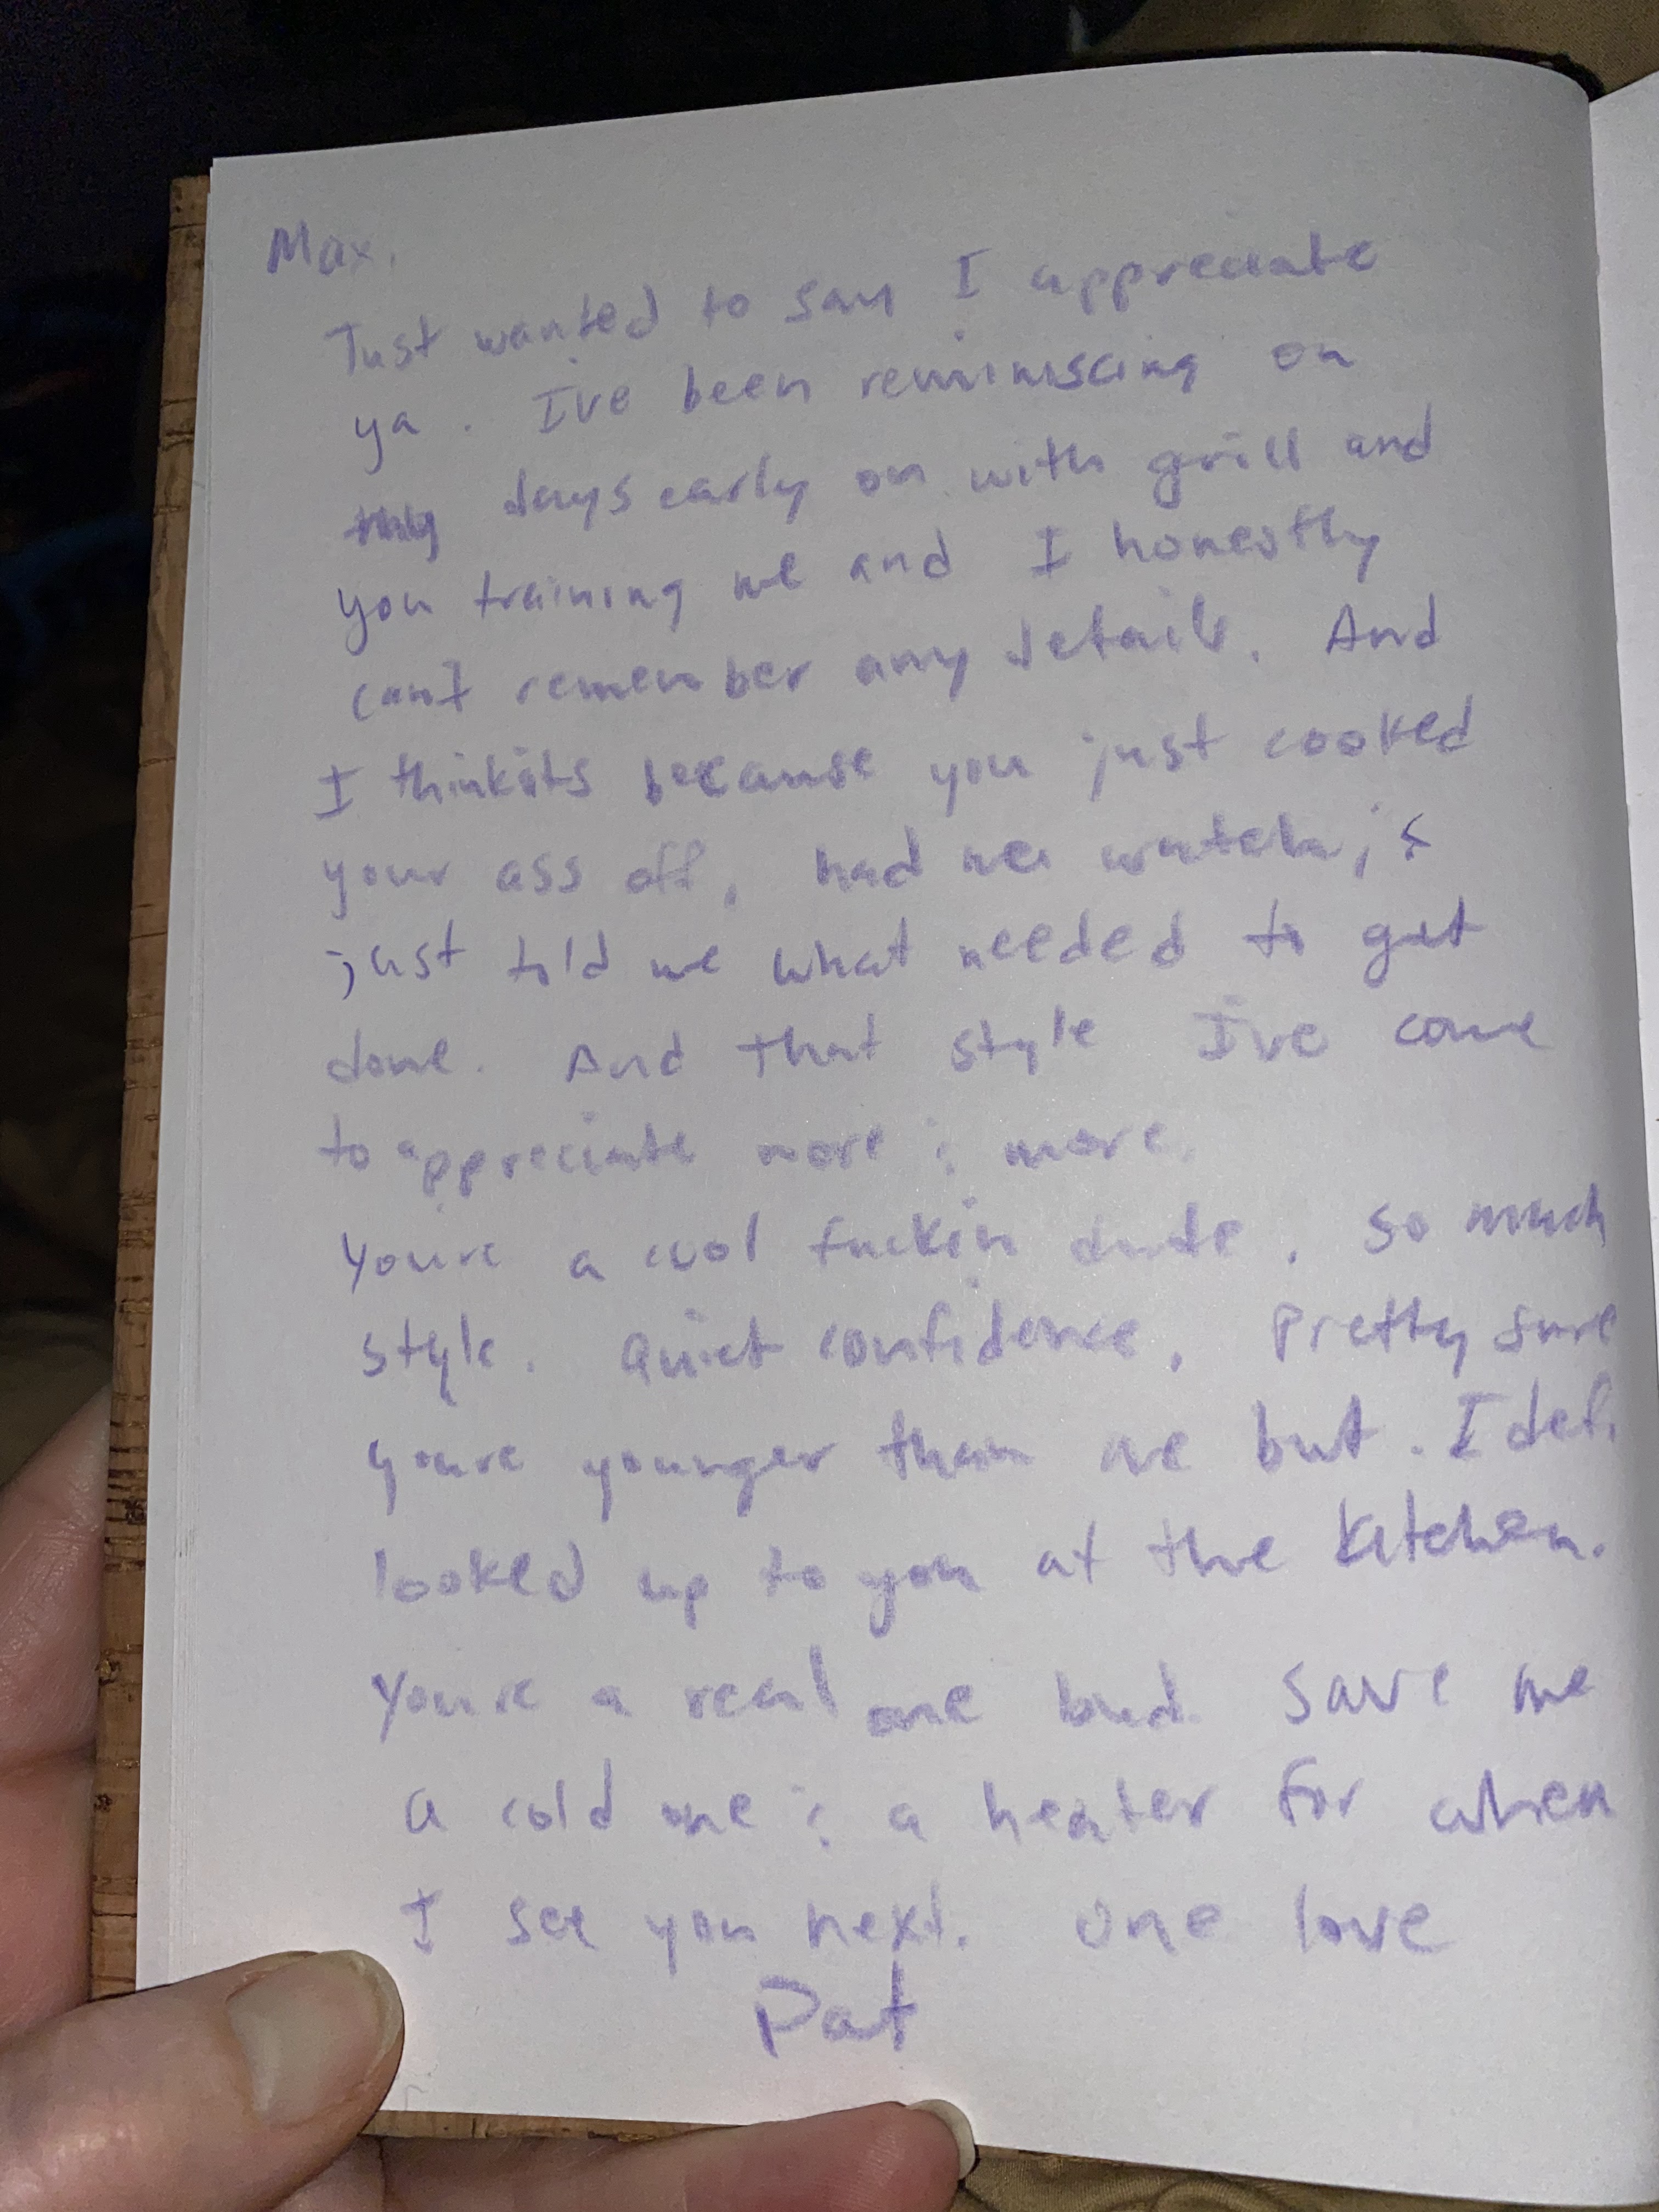 Max,
Just wanted to say I appreciate
ya. I've been reminiscing on
my days early on with grill and
you training me and I honestly
can't remember any details. And
I think its because you just cooked
your ass off, had me watch, &
just told me what needed to get
done. And that style I've come
to appreciate more & more.
You're a cool fuckin dude. So much
style. Quiet confidence. Pretty sure
youre younger than me but. I def.
looked up to you at the kitchen.
You're a real one bud. Save me
a cold one & a heater for when
I see you next. One love
Pat